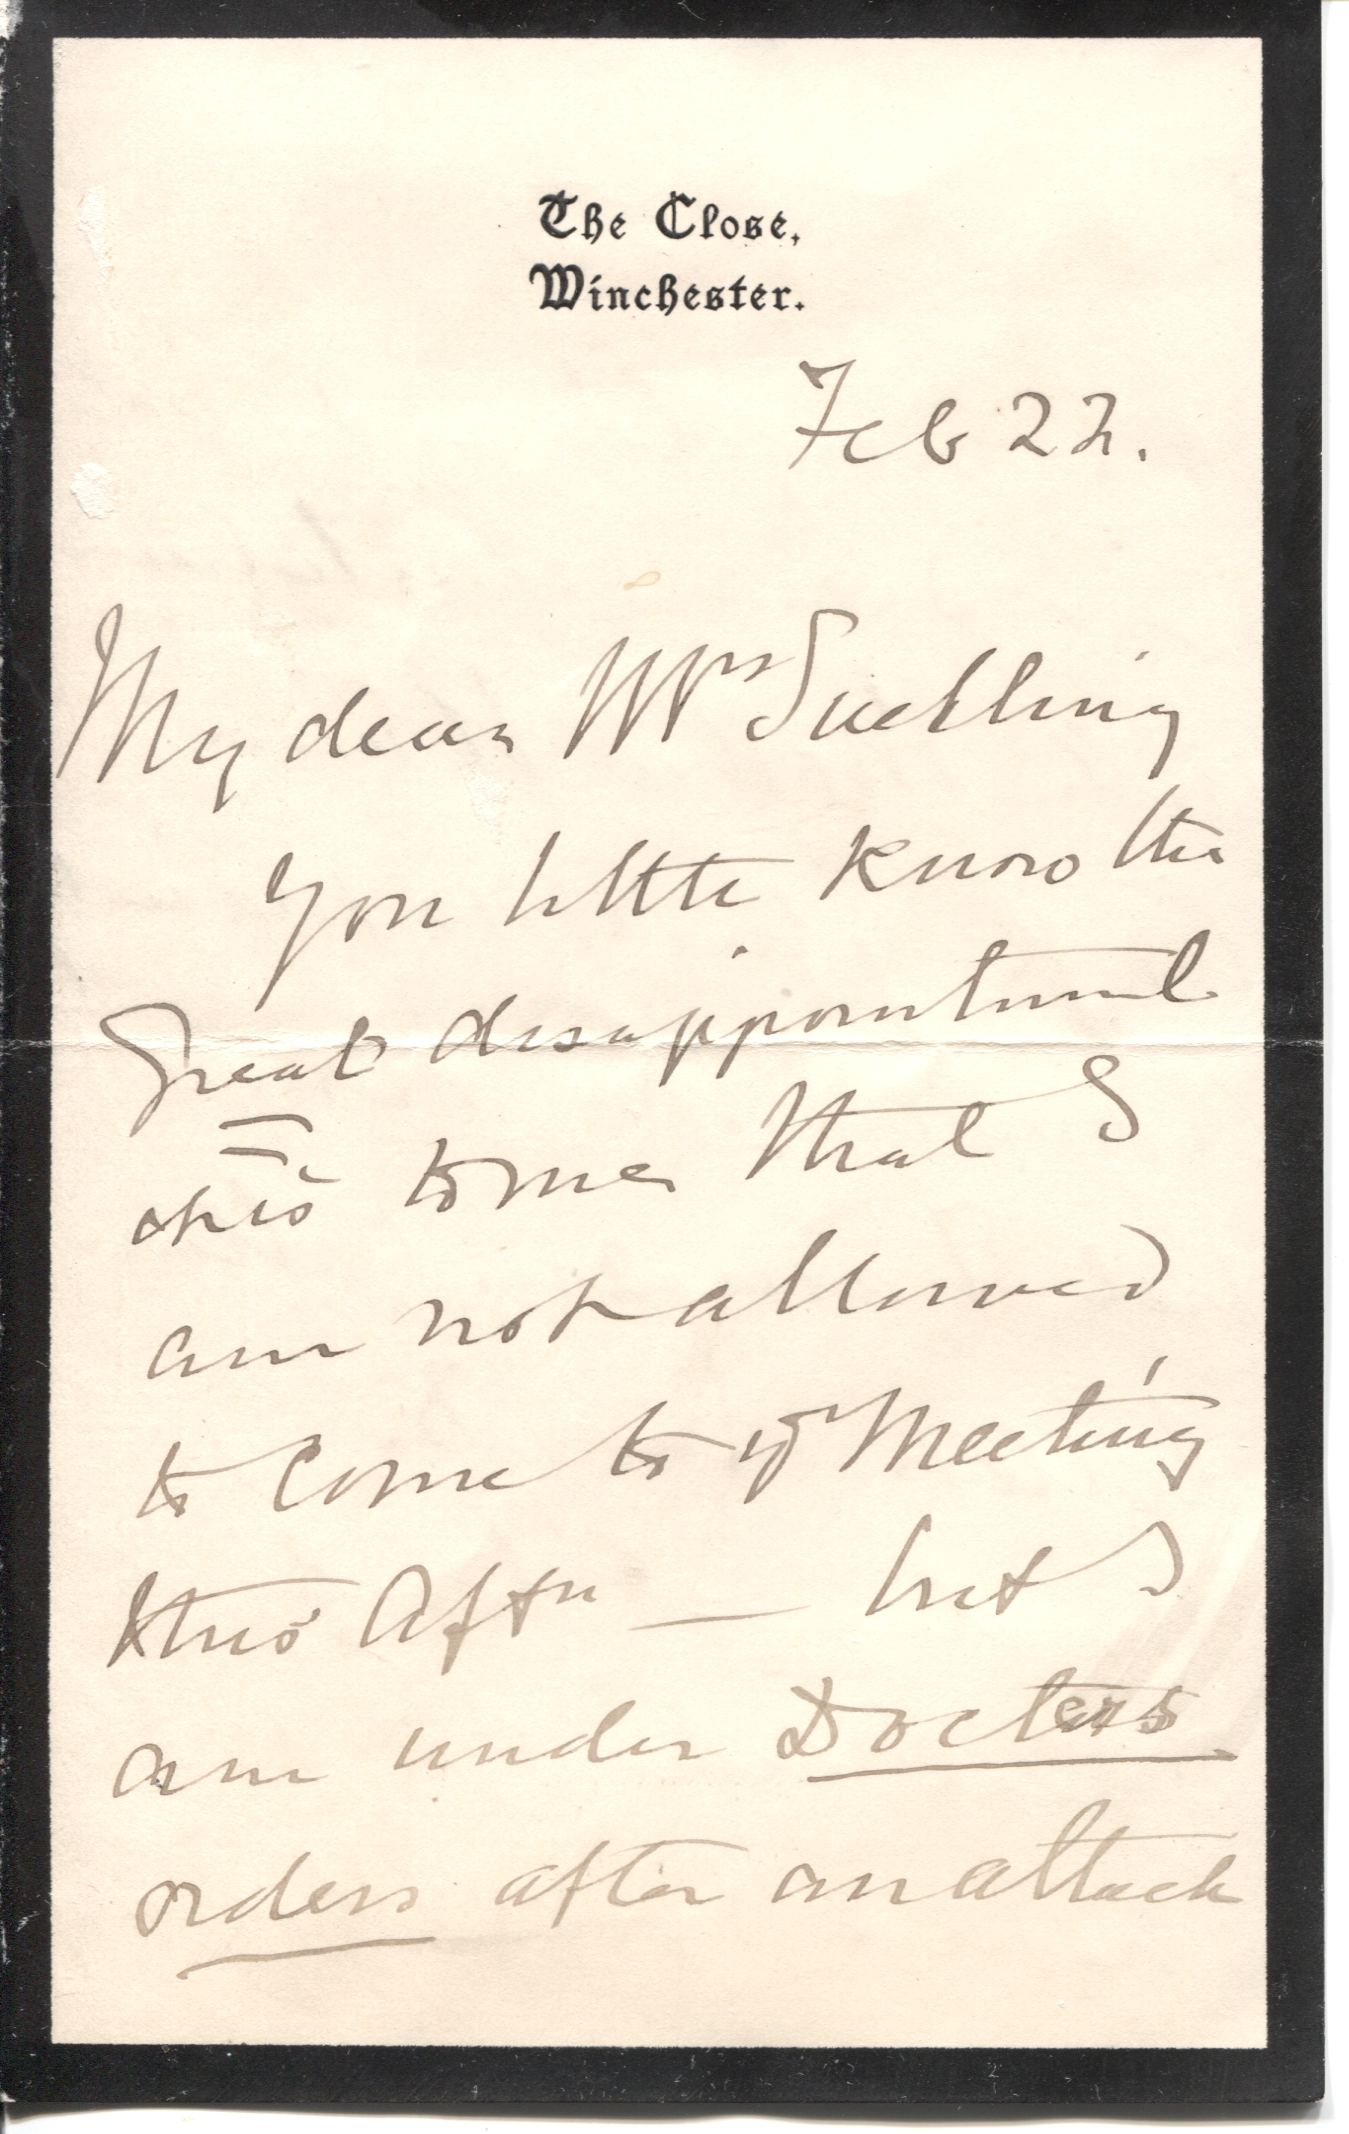 The Close,
Winchester.
Feb 22.
My dear Mrs Suckling
You little know the
Great disappointment
it is to me that I
am not allowed
to come to yr Meeting
this Aftn — but I
am under Doctors
orders after an attack